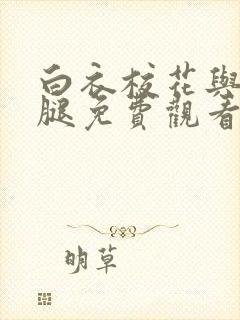 白衣校花與
腿免費觀看
明草